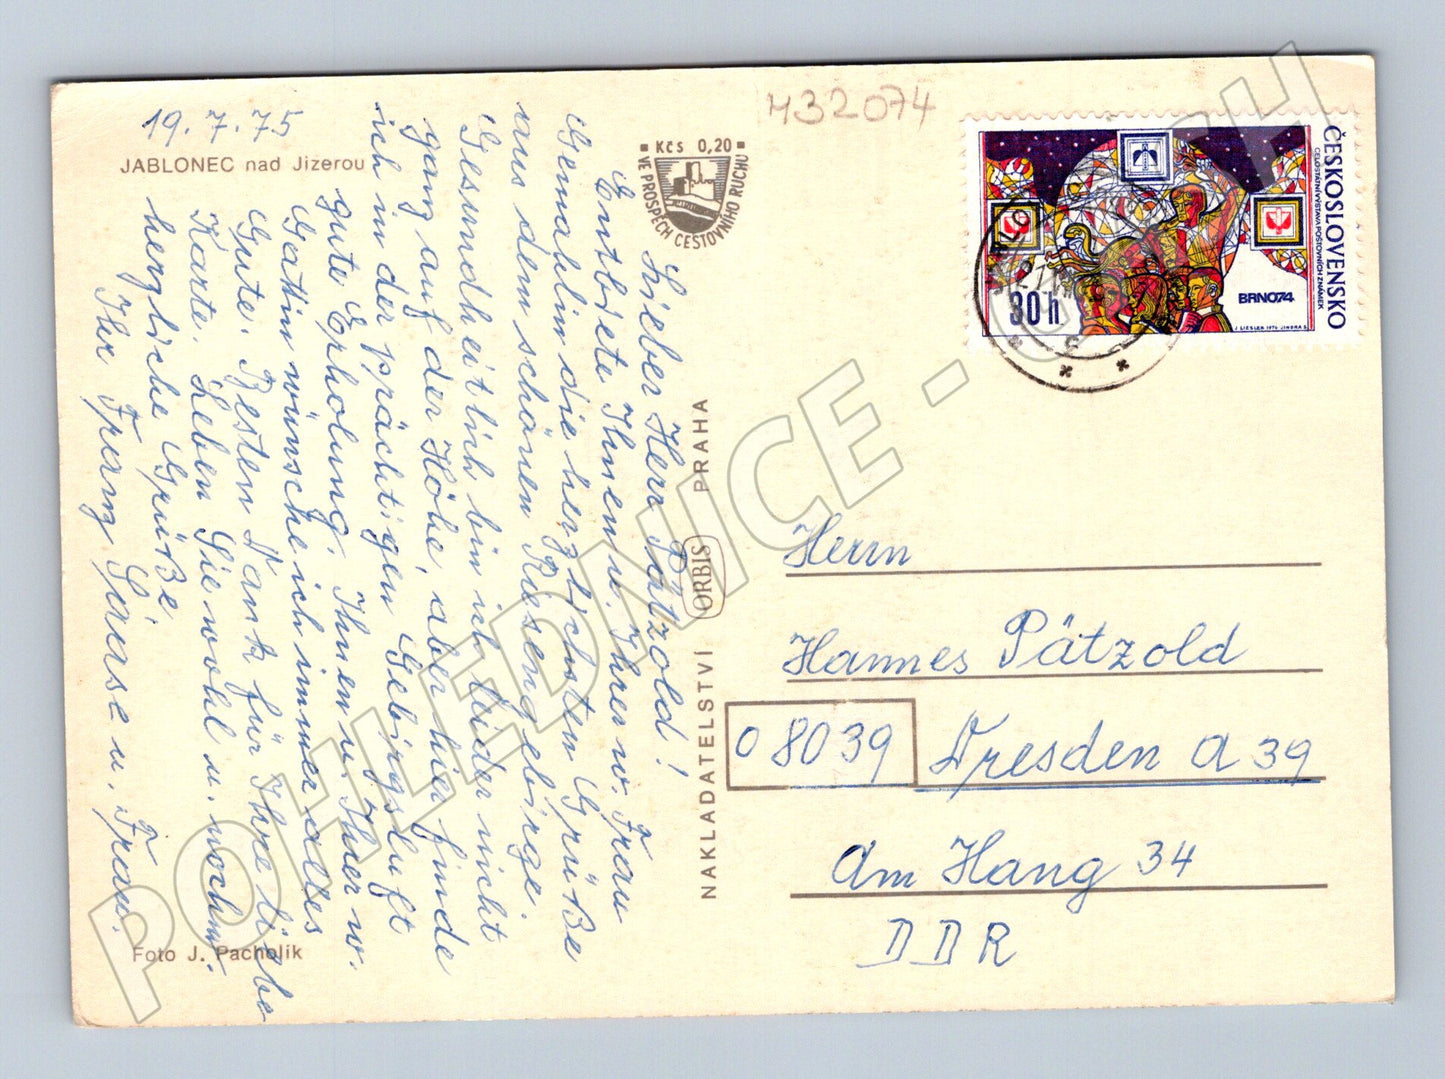 19.7.75
JABLONEC nad Jizerou
Kčs 0,20
VE PROSPĚCH CESTOVNÍHO RUCHU
Lieber Herr Pätzold!
Entbiete Ihnen u. Ihrer w. Frau
Gemahlin die herzlichsten Grüße
aus dem schönen Riesengebirge.
Gesundheitlich bin ich leider nicht
gang auf der Höhe, aber hier finde
ich in der prächtigen Gebirgsluft
gute Erholung. Ihnen u. Ihrer w.
Gattin wünsche ich immer alles
Gute. Besten Dank für Ihre liebe
Karte. Leben Sie wohl u. nochm.
herzliche Grüße.
Ihr Franz u. Frau.
Foto J. Pacholík
NAKLADATELSTVÍ ORBIS PRAHA
M32074
ČESKOSLOVENSKO
CELOSTÁTNÍ VÝSTAVA POŠTOVNÍCH ZNÁMEK
BRNO74
30h
J. LIESLER 1974 JINDRA S.
Herrn
Hannes Pätzold
08039 Dresden A 39
Am Hang 34
DDR
POHLEDNICE -